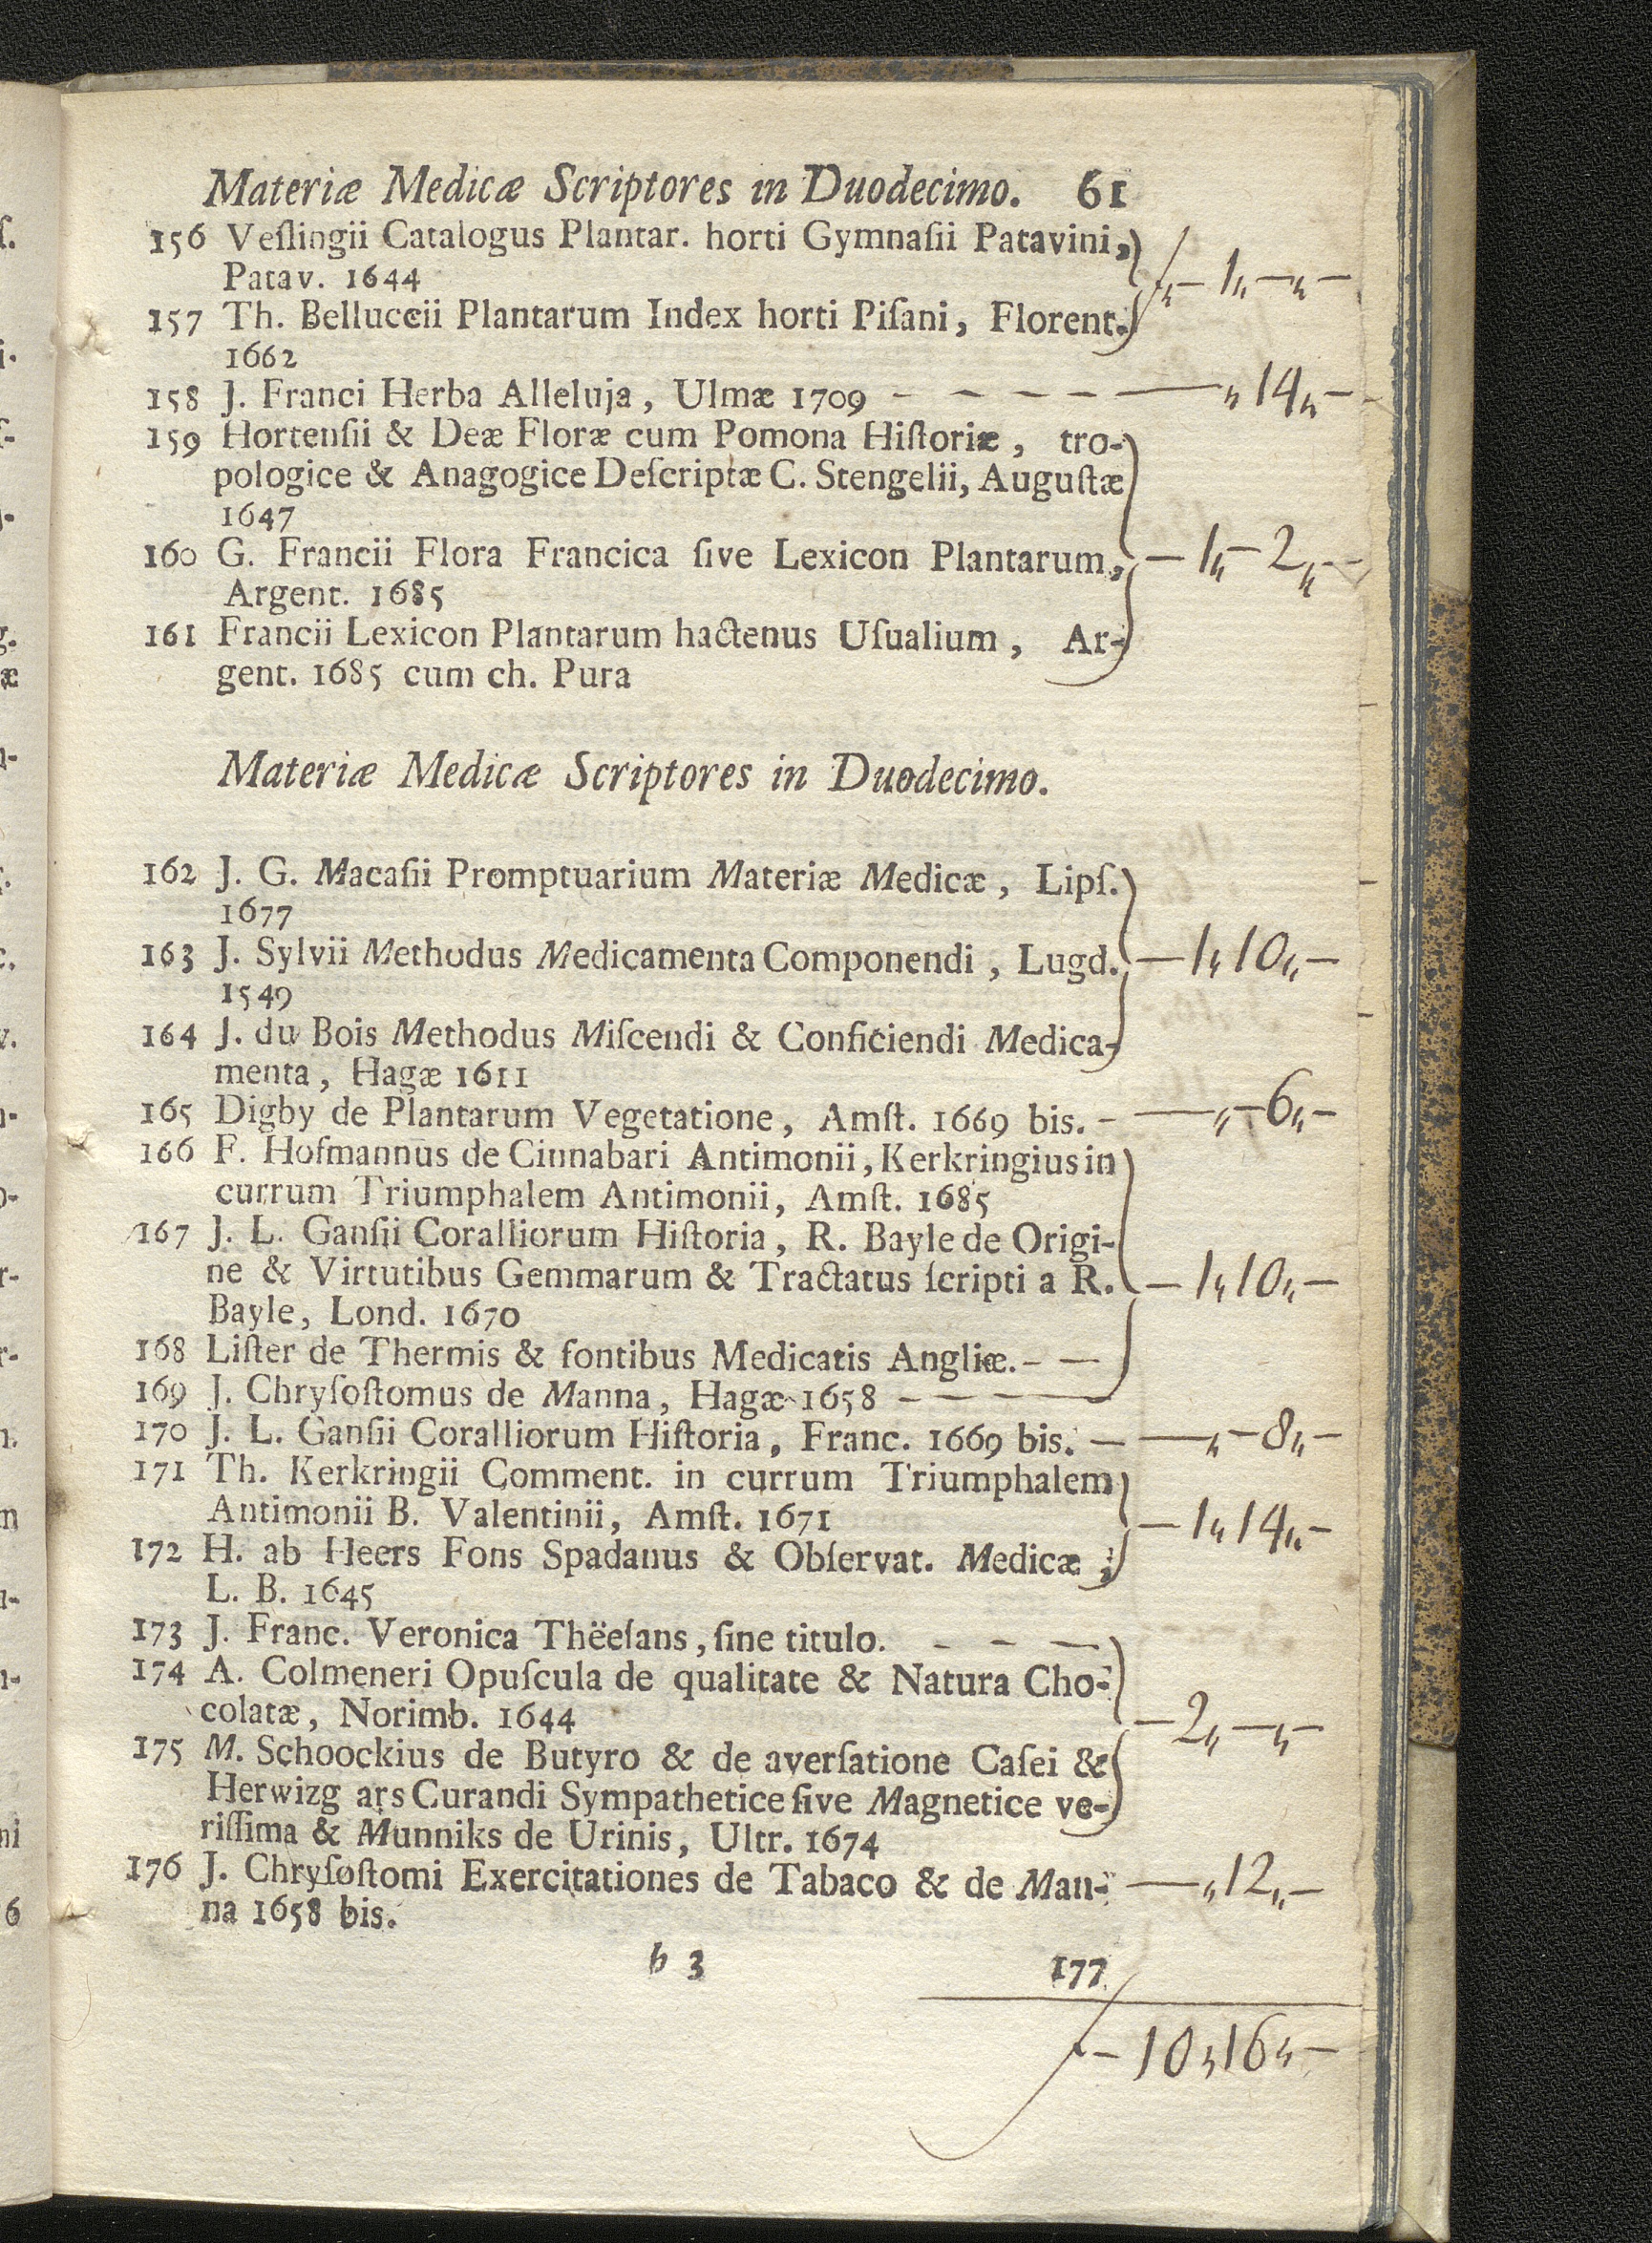 Materiæ Medicæ Scriptores in Duodecimo. 61
156 Veſlingii Catalogus Plantar. horti Gymnaſii Patavini,
Patav. 1644
ƒ„— 1„—„—
157 Th. Belluccii Plantarum Index horti Piſani, Florent.
1662
158 J. Franci Herba Alleluja, Ulmæ 1709 - - - - — „ 14„—
159 Hortenſii & Deæ Floræ cum Pomona Hiſtoriæ, tro-
pologice & Anagogice Deſcriptæ C. Stengelii, Auguſtæ
1647
160 G. Francii Flora Francica ſive Lexicon Plantarum, — 1„— 2„—
Argent. 1685
161 Francii Lexicon Plantarum hactenus Uſualium, Ar-
gent. 1685 cum ch. Pura
Materiæ Medicæ Scriptores in Duodecimo.
162 J. G. Macaſii Promptuarium Materiæ Medicæ, Lipſ.
1677
163 J. Sylvii Methodus Medicamenta Componendi, Lugd. — 1„ 10„—
1549
164 J. du Bois Methodus Miſcendi & Conficiendi Medica-
menta, Hagæ 1611
165 Digby de Plantarum Vegetatione, Amſt. 1669 bis. - — „— 6„—
166 F. Hofmannus de Cinnabari Antimonii, Kerkringius in
currum Triumphalem Antimonii, Amſt. 1685
167 J. L. Ganſii Coralliorum Hiſtoria, R. Bayle de Origi-
ne & Virtutibus Gemmarum & Tractatus ſcripti a R. — 1„ 10„—
Bayle, Lond. 1670
168 Liſter de Thermis & fontibus Medicatis Angliæ. - —
169 J. Chryſoſtomus de Manna, Hagæ 1658 - - - -
170 J. L. Ganſii Coralliorum Hiſtoria, Franc. 1669 bis. — — „— 8„—
171 Th. Kerkringii Comment. in currum Triumphalem
Antimonii B. Valentinii, Amſt. 1671 — 1„ 14„—
172 H. ab Heers Fons Spadanus & Obſervat. Medicæ;
L. B. 1645
173 J. Franc. Veronica Thëeſans, ſine titulo. - - —
174 A. Colmeneri Opuſcula de qualitate & Natura Cho-
colatæ, Norimb. 1644 — 2„—„—
175 M. Schoockius de Butyro & de averſatione Caſei &
Herwizg ars Curandi Sympathetice ſive Magnetice ve-
riſſima & Munniks de Urinis, Ultr. 1674
176 J. Chryſoſtomi Exercitationes de Tabaco & de Man- — „ 12„—
na 1658 bis.
h 3 177
ƒ — 10„ 16„—